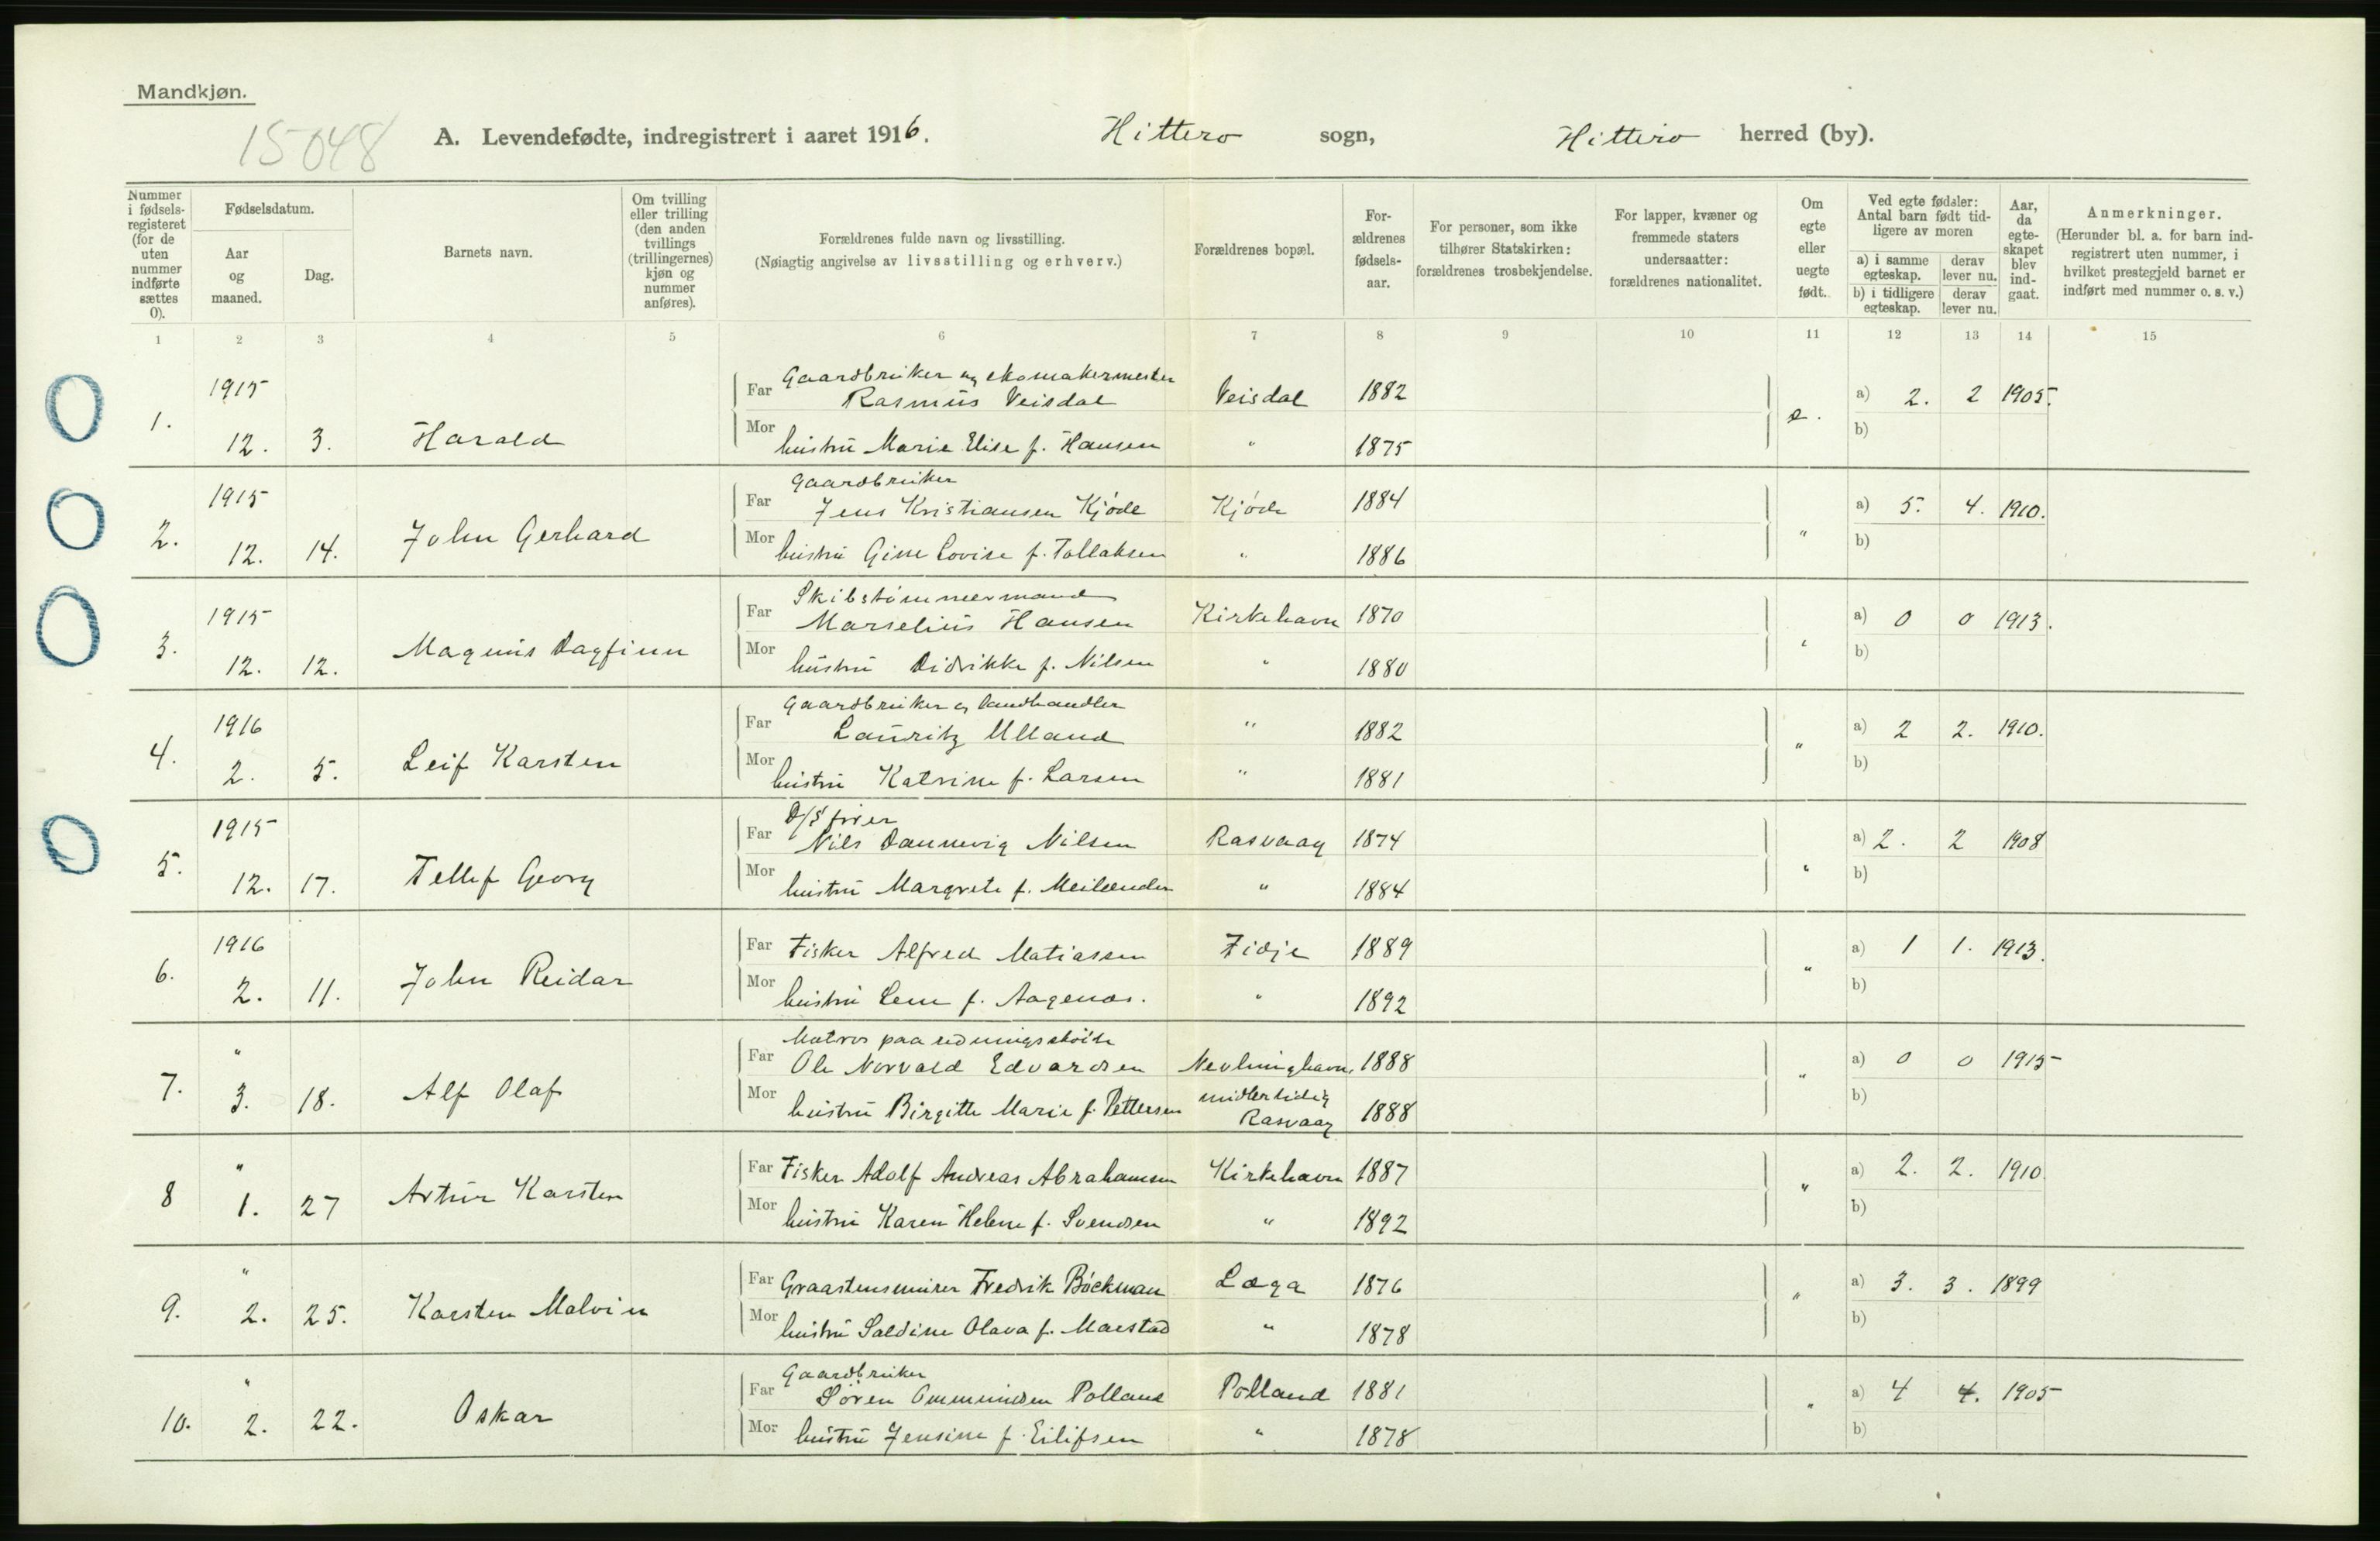 Mandkjøn.
15048
A. Levendefødte, indregistrert i aaret 1916. Hitterø sogn, Hitterø herred (by).
Nummer i fødselsregisteret (for de uten nummer indførte sættes 0).
Fødselsdatum.
Aar og maaned.
Dag.
Barnets navn.
Om tvilling eller trilling (den anden tvillings (trillingernes) kjøn og nummer anføres).
Forældrenes fulde navn og livsstilling.
(Nøiagtig angivelse av livsstilling og erhverv.)
Forældrenes bopæl.
Forældrenes fødselsaar.
For personer, som ikke tilhører Statskirken: forældrenes trosbekjendelse.
For lapper, kvæner og fremmede staters undersaatter: forældrenes nationalitet.
Om egte eller uegte født.
Ved egte fødsler: Antal barn født tidligere av moren
a) i samme egteskap. derav lever nu.
b) i tidligere egteskap. derav lever nu.
Aar, da egteskapet blev indgaat.
Anmerkninger.
(Herunder bl. a. for barn indregistrert uten nummer, i hvilket prestegjeld barnet er indført med nummer o. s. v.)
1 2 3 4 5 6 7 8 9 10 11 12 13 14 15
1915 Gaardbruker og skomakermester
Far Rasmus Veisdal Veisdal 1882 a) 2. 2 1905.
1. 12. 3. Harald e.
Mor hustru Marie Elise f. Hansen " 1875 b)
1915 Gaardbruker
Far Jens Kristiansen Kjøde Kjøde 1884 a) 5. 4. 1910.
2. 12. 14. John Gerhard "
Mor hustru Gine Lovise f. Tollaksen " 1886 b)
1915 Skibstømmermand
Far Marselius Hansen Kirkehavn 1870 a) 0 0 1913.
3. 12. 12. Magnus Dagfinn "
Mor hustru Didrikke f. Nilsen " 1880 b)
1916 Gaardbruker og landhandler
Far Lauritz Ulland " 1882 a) 2 2. 1910.
4. 2. 5. Leif Karsten "
Mor hustru Katrine f. Larsen " 1881 b)
1915 D/S
Far Nils Dannevig Nilsen Rasvaag 1874 a) 2. 2 1908
5. 12. 17. Tellef Georg "
Mor hustru Margrete f. 1884 b)
1916
Far Fisker Alfred Matiassen Fidje 1889 a) 1 1. 1913.
6. 2. 11. John Reidar "
Mor hustru Lene f. Aagenæs. " 1892 b)
" Matros paa redningsskøite
Far Ole Norvald Edvardsen Nevlunghavn, 1888 a) 0 0 1915
7. 3. 18. Alf Olaf "
Mor hustru Birgitte Marie f. Pettersen midlertidig Rasvaag 1888 b)
"
Far Fisker Adolf Andreas Abrahamsen Kirkehavn 1887 a) 2. 2. 1910.
8 1. 27 Artur Karsten "
Mor hustru Karen Helene f. Svendsen " 1892 b)
"
Far Graastensmurer Fredrik Böckman Læga 1876 a) 3. 3. 1899
9. 2. 25. Karsten Malvin "
Mor hustru Saldine Olava f. " 1878 b)
" Gaardbruker
Far Søren Ommundsen Polland Polland 1881 a) 4 4. 1905
10. 2. 22. Oskar "
Mor hustru Jensine f. Eilifsen " 1878 b)